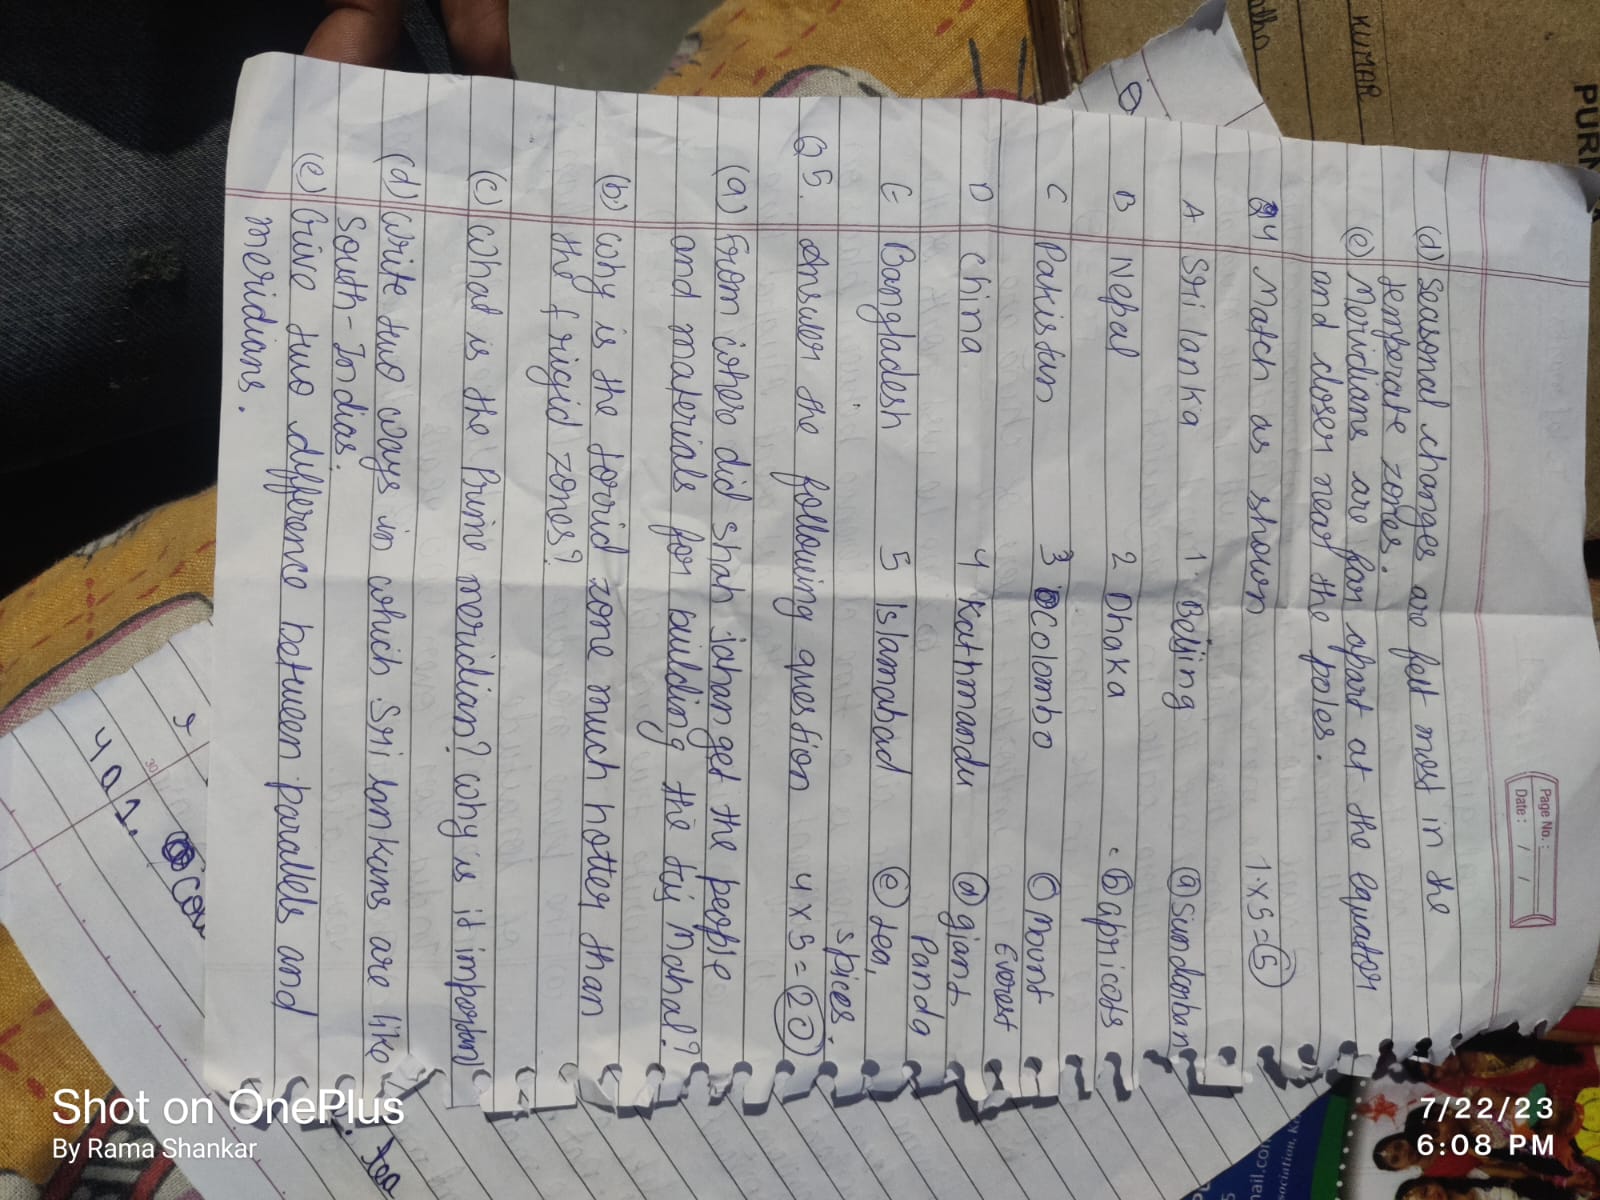 PURN
KUMAR
Page No. :
Date : / /
7/22/23
6:08 PM
(d) Seasonal changes are felt most in the
temperate zones.
(e) Meridians are far apart at the equator
and closer near the poles.
Q4 Match as shown 1×5=5
A Sri lanka 1 Beijing (a) Sundarban
B Nepal 2 Dhaka (b) apricots
C Pakistan 3 Colombo (c) Mount
Everest
D China 4 Kathmandu (d) giant
Panda
E Bangladesh 5 Islamabad (e) tea,
spices.
Q5. Answer the following question 4×5=20
(a) From where did shah jahan get the people
and materials for building the taj Mahal?
(b) Why is the torrid zone much hotter than
the frigid zones?
(c) What is the Prime meridian? Why is it important
(d) Write two ways in which Sri lankans are like
South-Indias.
(e) Give two difference between parallels and
meridians.
4 a 1.
tea
Shot on OnePlus
By Rama Shankar